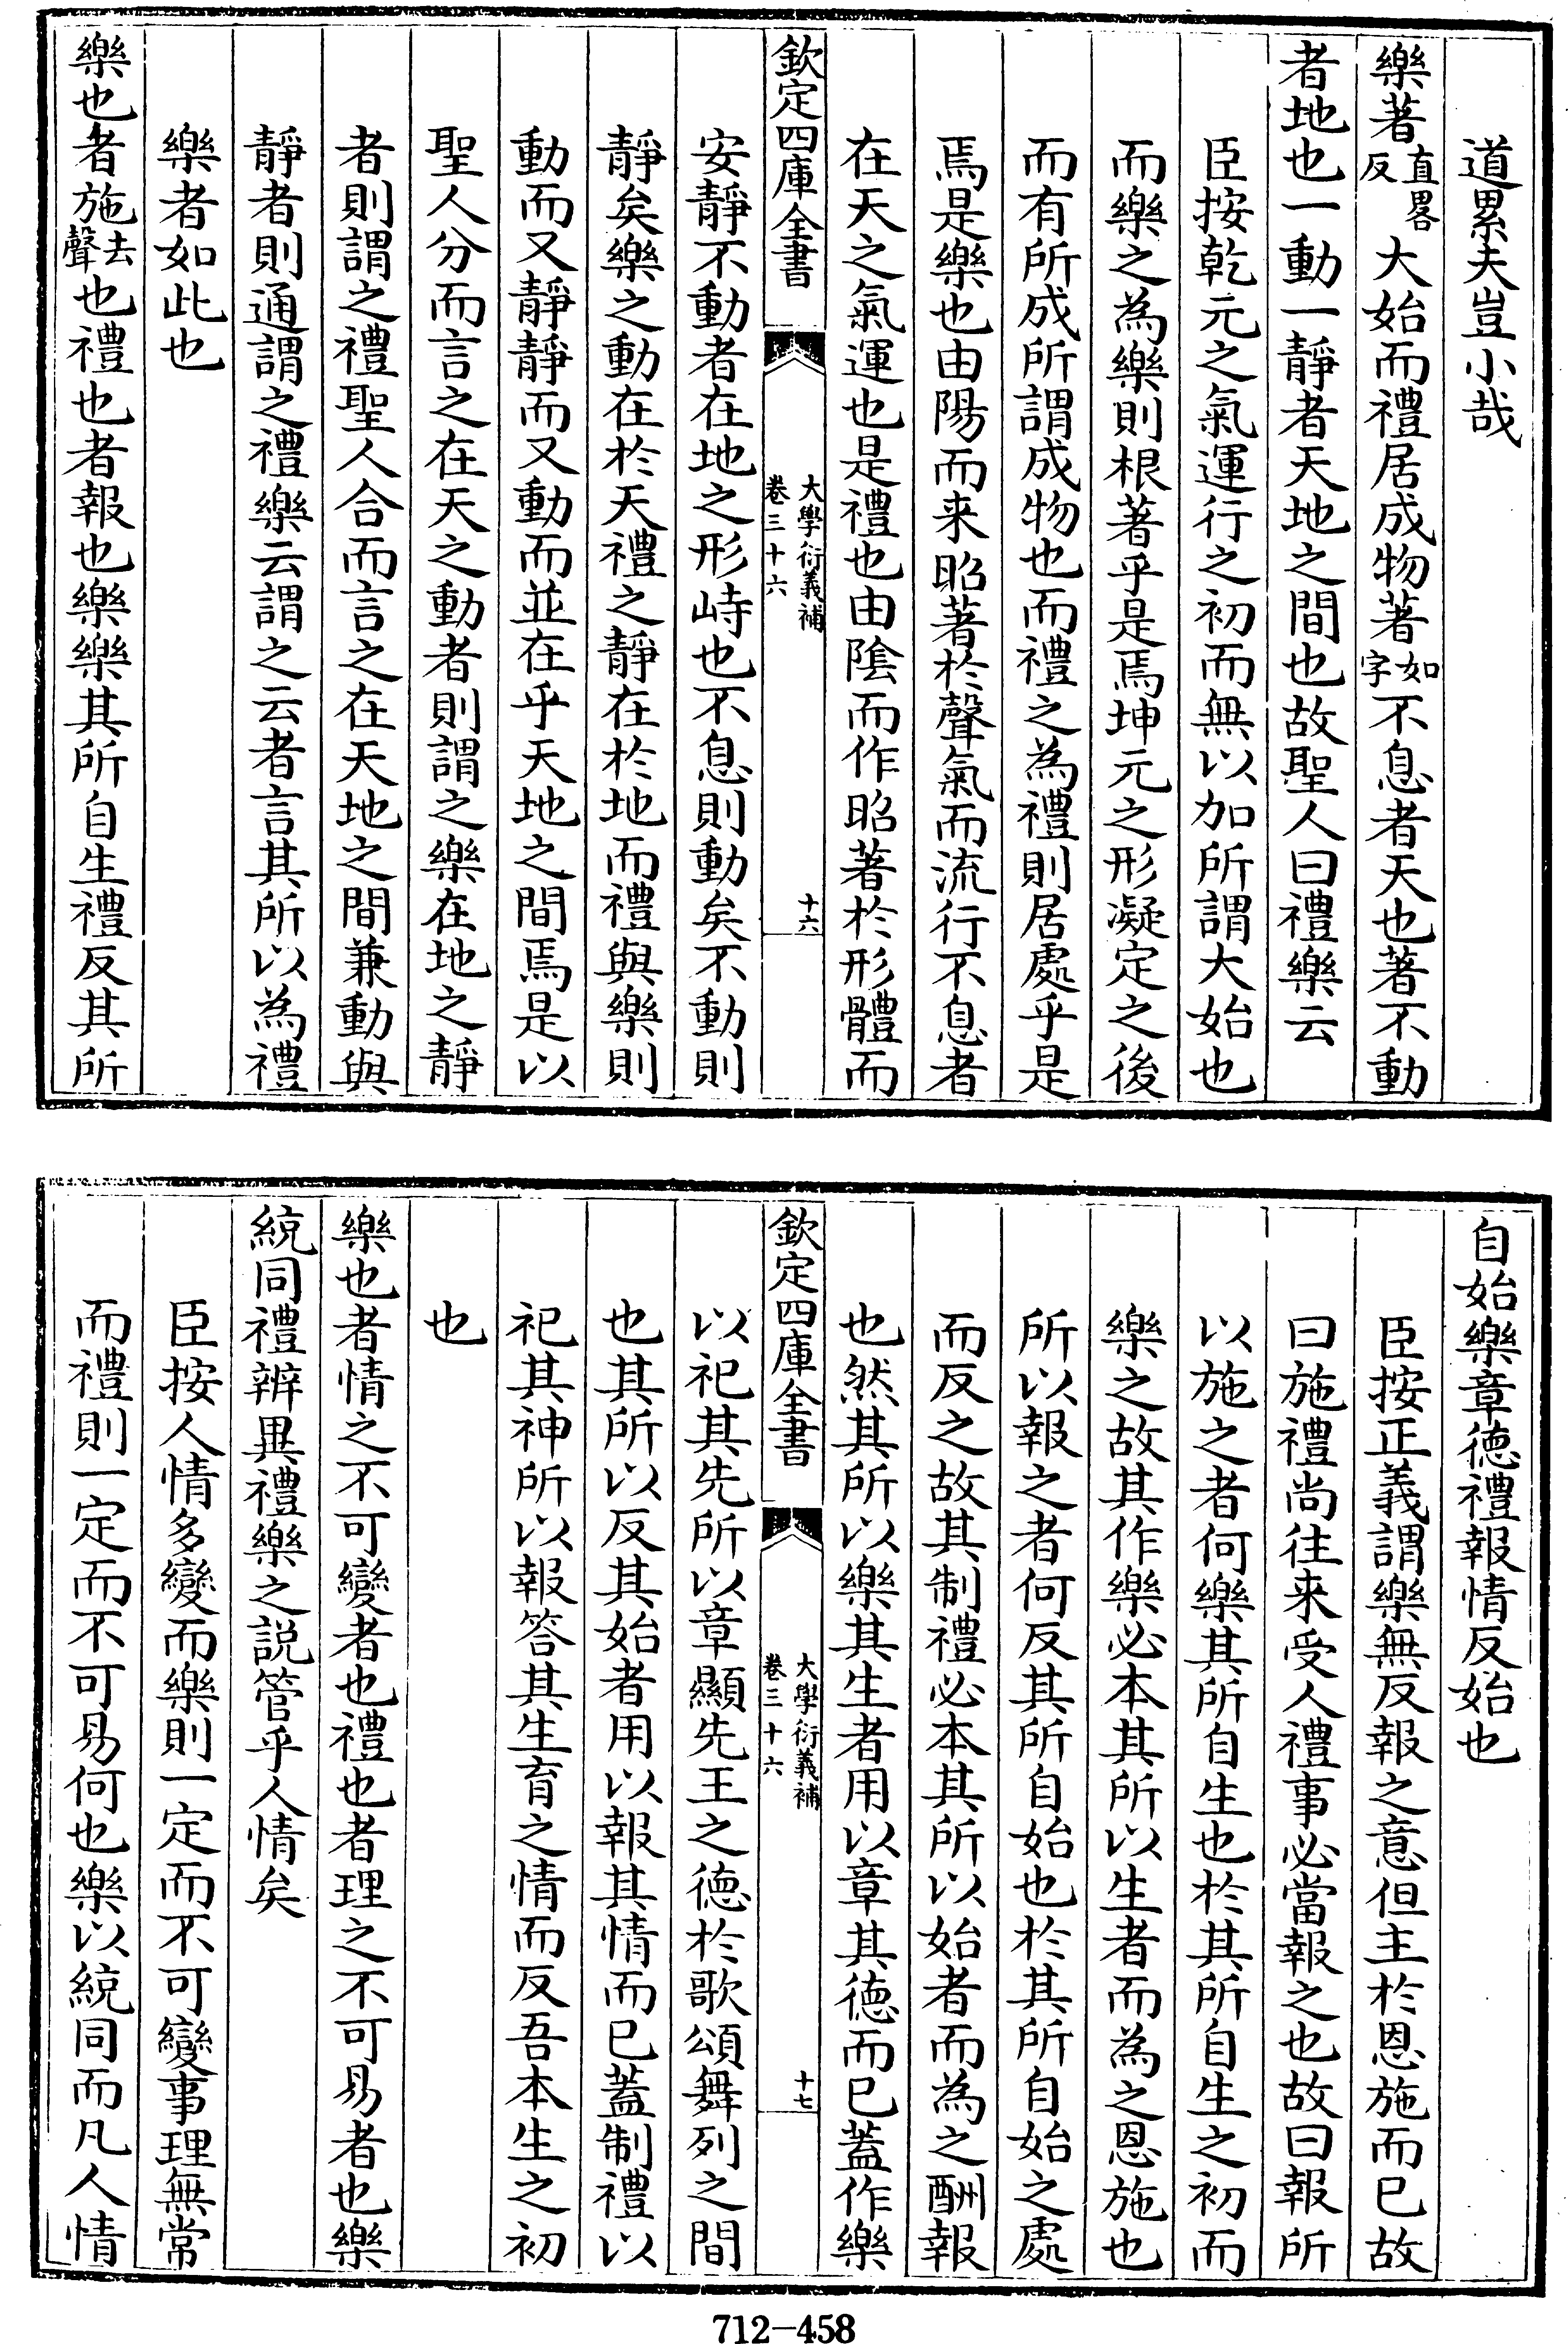 道累夫豈小哉
樂著直略反大始而禮居成物著如字不息者天也著不動
者地也一動一靜者天地之間也故聖人曰禮樂云
臣按乾元之氣運行之初而無以加所謂大始也
而樂之為樂則根著乎是焉坤元之形凝定之後
而有所成所謂成物也而禮之為禮則居處乎是
焉是樂也由陽而来昭著於聲氣而流行不息者
在天之氣運也是禮也由隂而作昭著於形體而
欽定四庫全書
大學衍義補
卷三十六
十六
安靜不動者在地之形峙也不息則動矣不動則
靜矣樂之動在於天禮之靜在於地而禮與樂則
動而又靜靜而又動而並在乎天地之間焉是以
聖人分而言之在天之動者則謂之樂在地之靜
者則謂之禮聖人合而言之在天地之間兼動與
靜者則通謂之禮樂云謂之云者言其所以為禮
樂者如此也
樂也者施去聲也禮也者報也樂樂其所自生禮反其所
自始樂章徳禮報情反始也
臣按正義謂樂無反報之意但主於恩施而已故
曰施禮尚往来受人禮事必當報之也故曰報所
以施之者何樂其所自生也於其所自生之初而
樂之故其作樂必本其所以生者而為之恩施也
所以報之者何反其所自始也於其所自始之處
而反之故其制禮必本其所以始者而為之酬報
也然其所以樂其生者用以章其徳而已蓋作樂
欽定四庫全書
大學衍義補
卷三十六
十七
以祀其先所以章顯先王之徳於歌頌舞列之間
也其所以反其始者用以報其情而已蓋制禮以
祀其神所以報答其生育之情而反吾本生之初
也
樂也者情之不可變者也禮也者理之不可易者也樂
統同禮辨異禮樂之説管乎人情矣
臣按人情多變而樂則一定而不可變事理無常
而禮則一定而不可易何也樂以統同而凡人情
712-458